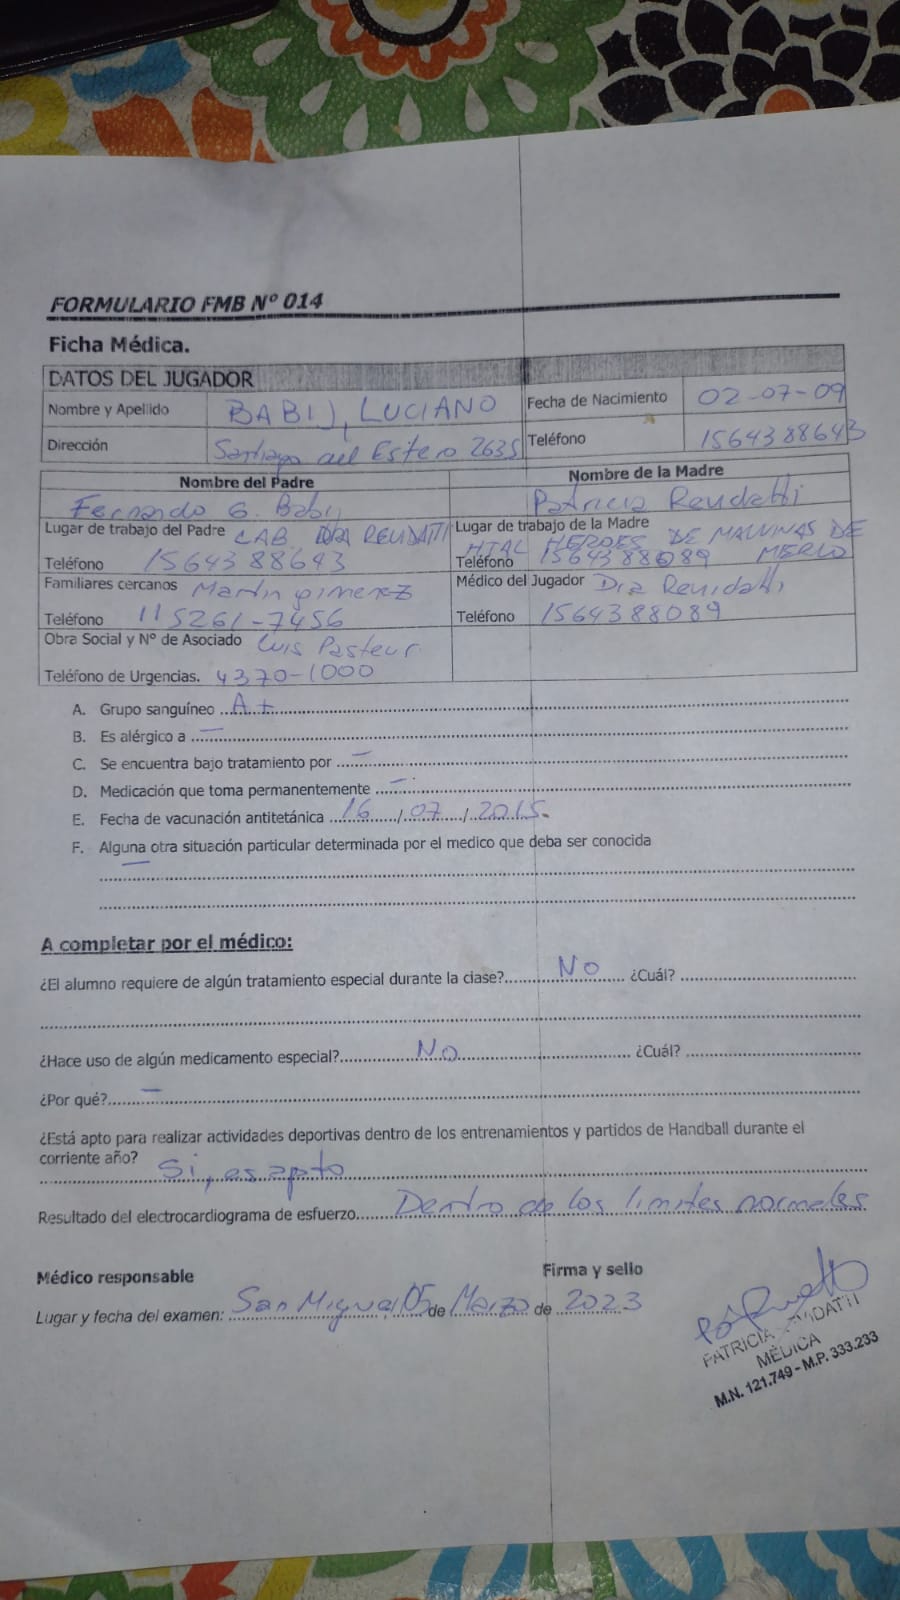 FORMULARIO FMB Nº 014
Ficha Médica.
DATOS DEL JUGADOR
Nombre y Apellido BABIJ, LUCIANO Fecha de Nacimiento 02-07-09
Dirección Santiago del Estero 2635 Teléfono 1564388643
Nombre del Padre Nombre de la Madre
Fernando G. Babij Patricia Revidatti
Lugar de trabajo del Padre LAB. DRA REVIDATTI Lugar de trabajo de la Madre HTAL HEROES DE MALVINAS DE MERLO
Teléfono 1564388643 Teléfono 1564388089
Familiares cercanos Martin gimenez Médico del Jugador Dra Revidatti
Teléfono 115261-7456 Teléfono 1564388089
Obra Social y Nº de Asociado Luis Pasteur
Teléfono de Urgencias. 4370-1000
A. Grupo sanguíneo A+
B. Es alérgico a —
C. Se encuentra bajo tratamiento por —
D. Medicación que toma permanentemente —
E. Fecha de vacunación antitetánica 16/07/2015.
F. Alguna otra situación particular determinada por el medico que deba ser conocida
—
A completar por el médico:
¿El alumno requiere de algún tratamiento especial durante la clase? No ¿Cuál?
¿Hace uso de algún medicamento especial? No ¿Cuál?
¿Por qué? —
¿Está apto para realizar actividades deportivas dentro de los entrenamientos y partidos de Handball durante el
corriente año? Si, es apto
Resultado del electrocardiograma de esfuerzo Dentro de los limites normales
Médico responsable Firma y sello
Lugar y fecha del examen: San Miguel, 05 de Marzo de 2023
PATRICIA REVIDATTI
MÉDICA
M.N. 121.749 - M.P. 333.233